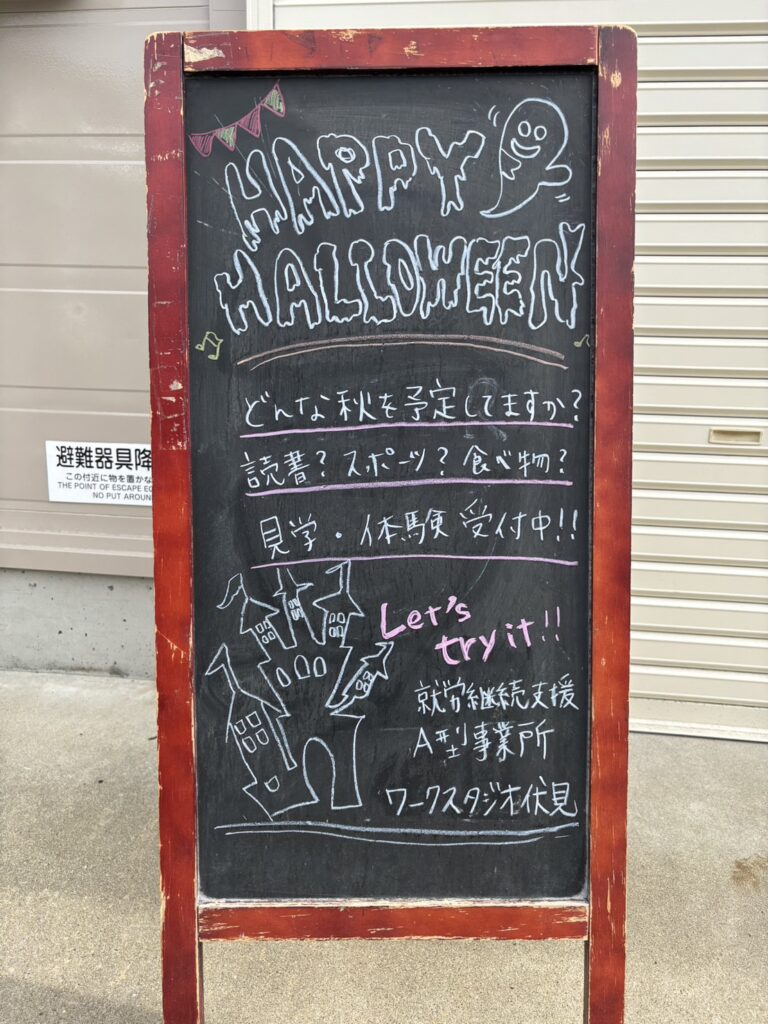 HAPPY
HALLOWEEN
どんな秋を予定してますか?
読書?スポーツ?食べ物?
見学・体験 受付中!!
Let's
try it!!
就労継続支援
A型事業所
ワークスタジオ伏見
避難器具降
この付近に物を置かな
THE POINT OF ESCAPE EQ
NO PUT AROUN